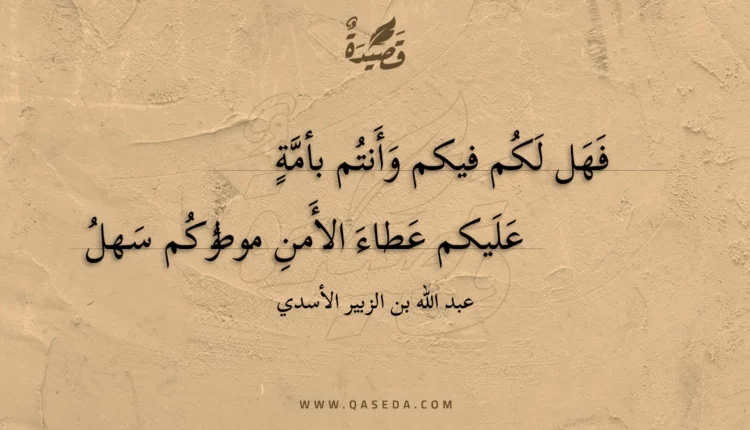 قَصِيْدَةٌ
فَهَل لَكُم فيكم وَأَنتُم بأمَّةٍ
عَلَيكم عَطاءَ الأَمنِ موطؤكُم سَهلُ
عبد الله بن الزبير الأسدي
WWW.QASEDA.COM